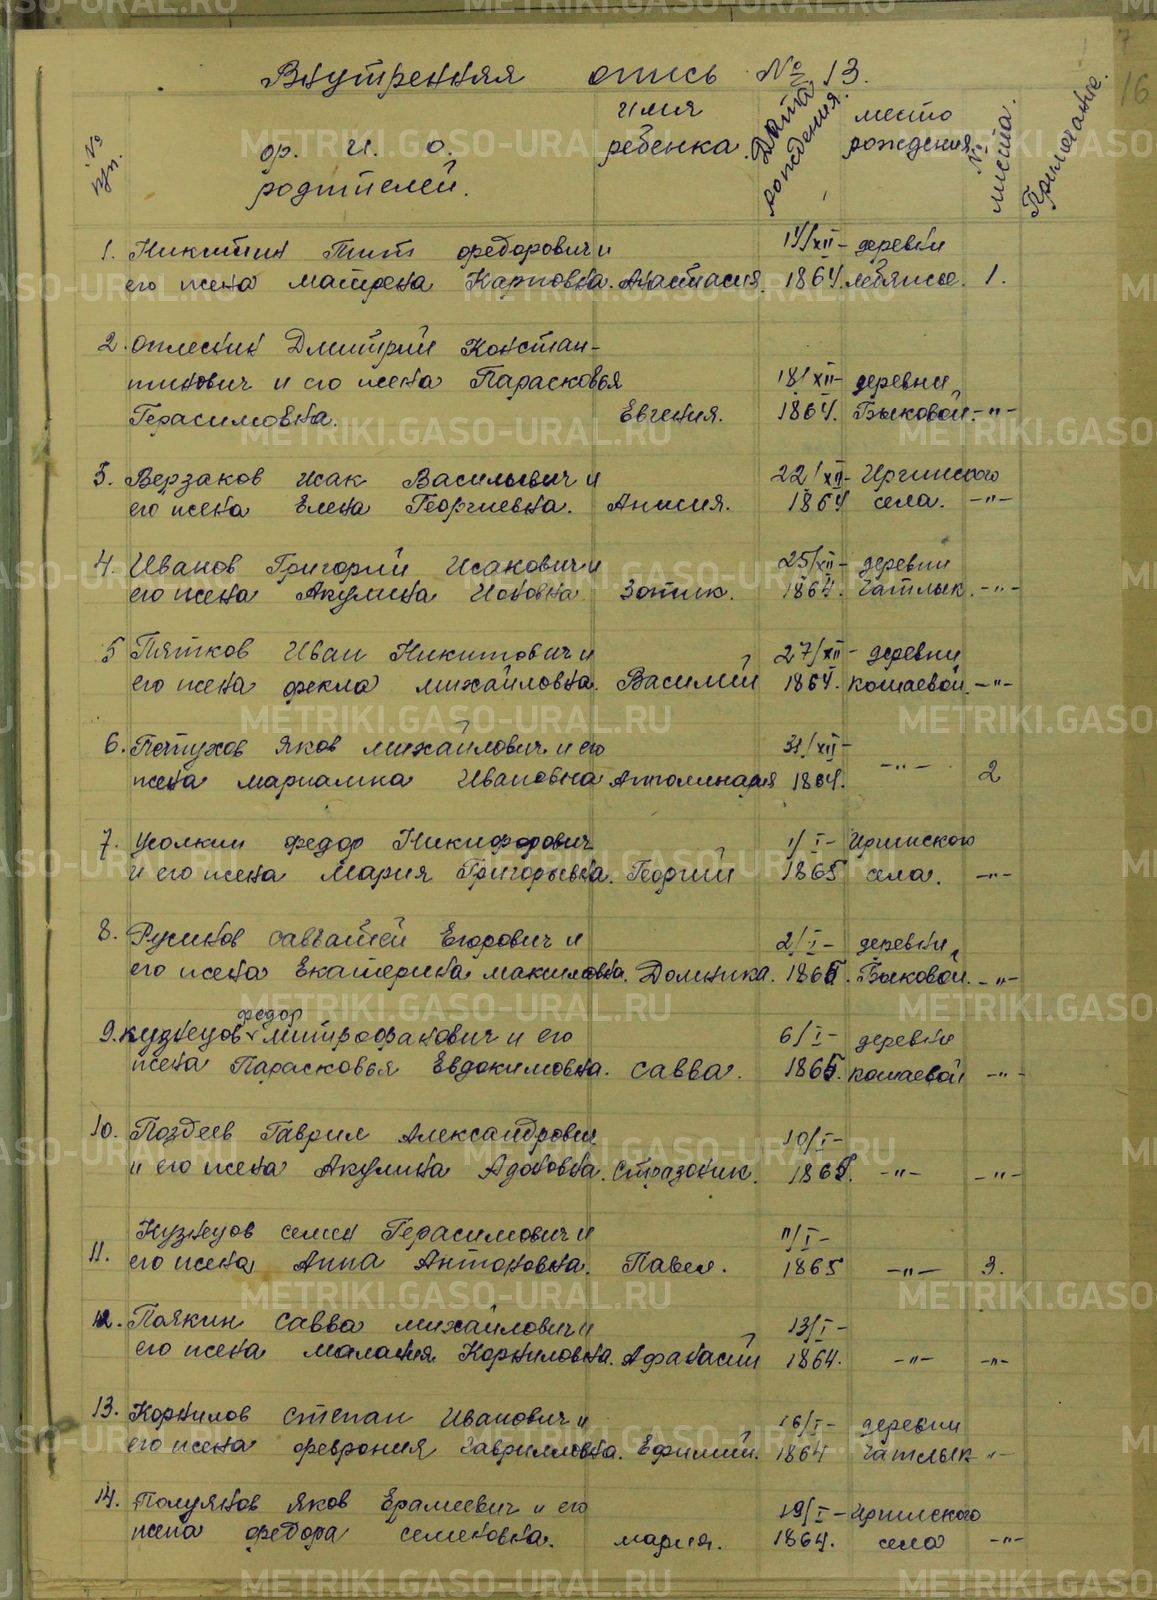 Внутренняя опись № 13.
16
№ пп.
ф. и. о. родителей.
имя ребенка.
Дата рождения.
место рождения
№ листа.
Примечание.
1. Никитин Тит Федорович и 17/XII- деревни
его жена Матрена Карповна. Анастасия. 1864. Лебяжье. 1.
2. Оплескин Дмитрий Констан-
тинович и его жена Парасковья 18/XII- деревни
Герасимовна. Евгения. 1864. Быковой. -"-
3. Верзаков Исак Васильевич и 22/XII- Иргинского
его жена Елена Георгиевна. Анисия. 1864 села. -"-
4. Иванов Григорий Исакович и 25/XII- деревни
его жена Акулина Иововна. Зотик. 1864. Чатлык. -"-
5 Пятков Иван Никитович и 27/XII- деревни
его жена Фекла Михайловна. Василий 1864. Кошаевой. -"-
6. Петухов Яков Михайлович и его 31/XII-
жена Мариамна Ивановна Апполинария 1864. -"- 2
7. Усолкин Федор Никифорович 1/I- Иргинского
и его жена Мария Григорьевна. Георгий 1865 села. -"-
8. Русинов Савватей Егорович и 2/I- деревни
его жена Екатерина Максимовна. Домника. 1865. Быковой. -"-
федор
9. Кузнецов Митрофанович и его 6/I- деревни
жена Парасковья Евдокимовна. Савва. 1865. Кошаевой -"-
10. Поздеев Гаврил Александрович 10/I-
и его жена Акулина Адоновна. Стразоник. 1865. -"- -"-
Кузнецов Семен Герасимович и 11/I-
11. его жена Анна Антоновна. Павел. 1865 -"- 3.
12. Паякин Савва Михайлович и 13/I-
его жена Малания Корниловна. Афанасий 1864. -"- -"-
13. Корнилов Степан Иванович и 16/I- деревни
его жена Феврония Гавриловна. Ефимий. 1864 Чатлык -"-
14. Полуянов Яков Ерамеевич и его 19/I- Иргинского
жена Федора Семеновна. Мария. 1864. села -"-
METRIKI.GASO-URAL.RU